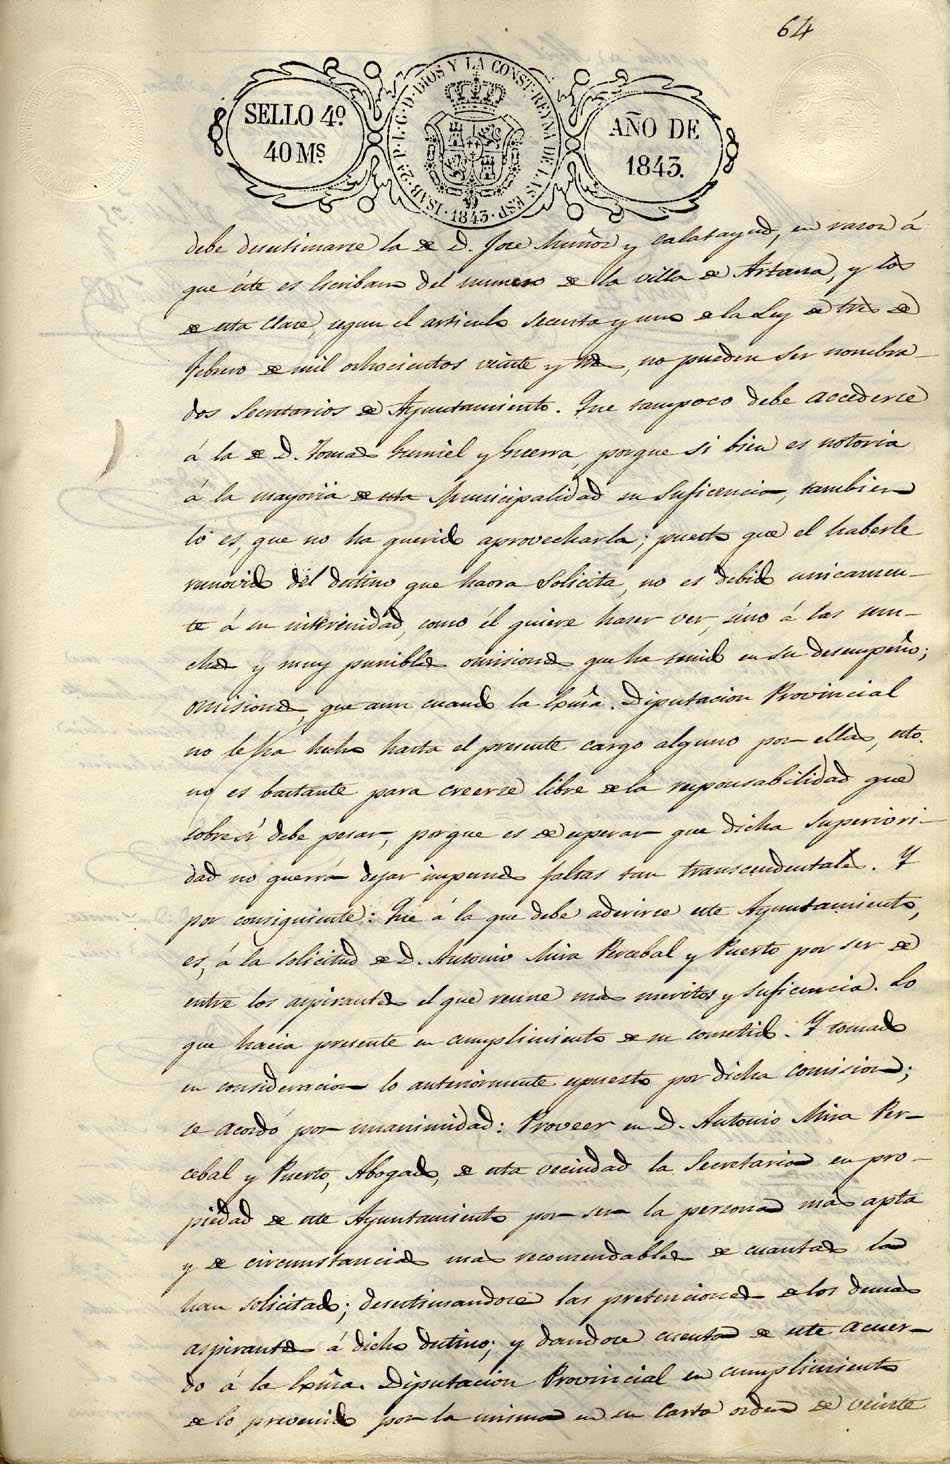 64
SELLO 4º
40 Mˢ
ISAB. 2ª P. L. G. D. DIOS Y LA CONST. REYNA DE LAS ESP.
1843
AÑO DE
1843.
debe desestimarse la de D. Jose Muñoz y Calatayud, en razon á
que éste es Escribano del numero de la villa de Artana, y los
de esta clase, segun el articulo sesenta y uno de la Ley de tres de
febrero de mil ochocientos veinte y tres, no pueden ser nombra-
dos Secretarios de Ayuntamiento. Que tampoco debe accederse
á la de D. Tomas Gumiel y Guerra, porque si bien es notoria
á la mayoria de esta Municipalidad su suficencia, tambien
lo es, que no ha querido aprovecharla; puesto que el haberle
removido del destino que haora solicita, no es debido unicamen-
te á su interinidad, como él quiere haser ver, sino á las mu-
chas y muy punibles omisiones que ha tenido en su desempeño;
omisiones, que aun cuando la Exma. Diputacion Provincial
no le ha hecho hasta el presente cargo alguno por ellas, esto
no es bastante para creerse libre de la responsabilidad que
sobre sí debe pesar, porque es de esperar que dicha Superiori-
dad no querrá dejar impunes faltas tan transcendentales. Y
por consiguiente: Que á la que debe aderirse este Ayuntamiento,
es, á la solicitud de D. Antonio Mira Percebal y Puerto por ser de
entre los aspirantes el que reune mas meritos y suficencia. Lo
que hacia presente en cumplimiento de su cometido. Y tomado
en consideracion lo anteriormente espuesto por dicha comision;
se acordó por unanimidad: Proveer en D. Antonio Mira Per-
cebal y Puerto, Abogado, de esta vecindad la Secretaria en pro-
piedad de este Ayuntamiento por ser la persona mas apta
y de circunstancias mas recomendables de cuantas la
han solicitado; desestimandose las pretenciones de los demas
aspirantes á dicho destino; y dandose cuenta de este acuer-
do á la Exma. Diputacion Provincial en cumplimiento
de lo prevenido por la misma en su Carta orden de veinte